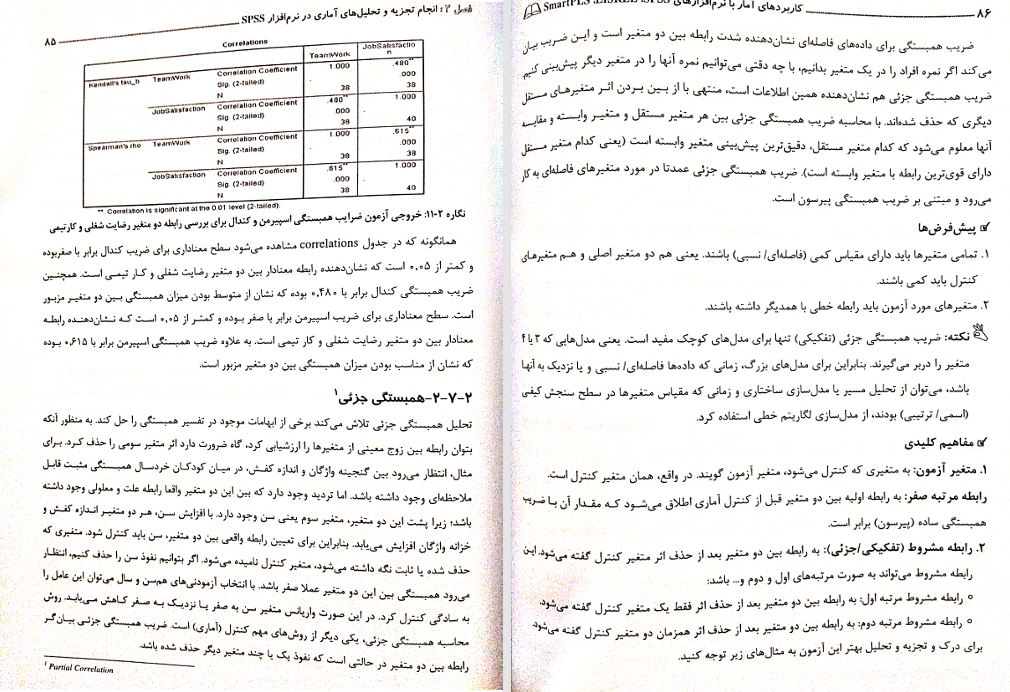 فصل ۲: انجام تجزیه و تحلیل‌های آماری در نرم‌افزار SPSS
۸۵
Correlations
TeamWork JobSatisfaction
Kendall's tau_b TeamWork Correlation Coefficient 1.000 .480**
Sig. (2-tailed) . .000
N 38 38
JobSatisfaction Correlation Coefficient .480** 1.000
Sig. (2-tailed) .000 .
N 38 40
Spearman's rho TeamWork Correlation Coefficient 1.000 .615**
Sig. (2-tailed) . .000
N 38 38
JobSatisfaction Correlation Coefficient .615** 1.000
Sig. (2-tailed) .000 .
N 38 40
**. Correlation is significant at the 0.01 level (2-tailed).
نگاره ۲-۱۱: خروجی آزمون ضرایب همبستگی اسپیرمن و کندال برای بررسی رابطه دو متغیر رضایت شغلی و کارتیمی
همانگونه که در جدول correlations مشاهده می‌شود سطح معناداری برای ضریب کندال برابر با صفربوده
و کمتر از ۰,۰۵ است که نشان‌دهنده رابطه معنادار بین دو متغیر رضایت شغلی و کـار تیمـی است. همچنـین
ضریب همبستگی کندال برابر با ۰,۴۸۰ بوده که نشان از متوسط بودن میزان همبستگی بـین دو متغیـر مزبـور
است. سطح معناداری برای ضریب اسپیرمن برابر با صفر بـوده و کمتـر از ۰,۰۵ اسـت کـه نـشان‌دهنـده رابطـه
معنادار بین دو متغیر رضایت شغلی و کار تیمی است. به علاوه ضریب همبستگی اسپیرمن برابر با ۰,۶۱۵ بـوده
که نشان از مناسب بودن میزان همبستگی بین دو متغیر مزبور است.
۲-۷-۲-همبستگی جزئی۱
تحلیل همبستگی جزئی تلاش می‌کند برخی از ابهامات موجود در تفسیر همبستگی را حل کند. به منظور آنکه
بتوان رابطه بین زوج معینی از متغیرها را ارزشیابی کرد، گاه ضرورت دارد اثر متغیر سومی را حذف کـرد. بـرای
مثال، انتظار می‌رود بین گنجینه واژگان و اندازه کفـش، در میـان کودکـان خردسـال همبستگی مثبـت قابـل
ملاحظه‌ای وجود داشته باشد. اما تردید وجود دارد که بین این دو متغیر واقعا رابطه علت و معلولی وجود داشته
باشد؛ زیرا پشت این دو متغیر، متغیر سوم یعنی سن وجود دارد. با افزایش سـن، هـر دو متغیـر انـدازه کفـش و
خزانه واژگان افزایش می‌یابد. بنابراین برای تعیین رابطه واقعی بین دو متغیر، سن باید کنترل شود. متغیری که
حذف شده یا ثابت نگه داشته می‌شود، متغیر کنترل نامیده می‌شود. اگر بتوانیم نفوذ سن را حذف کنیم، انتظار
می‌رود همبستگی بین این دو متغیر عملا صفر باشد. با انتخاب آزمودنی‌های هم‌سن و سال می‌توان این عامل را
به سادگی کنترل کرد. در این صورت واریانس متغیر سن به صفر یـا نزدیـک بـه صـفر کـاهش مـی‌یابـد. روش
محاسبه همبستگی جزئی، یکی دیگر از روش‌های مهم کنترل (آماری) است. ضریب همبستگی جزئـی بیـان‌گـر
رابطه بین دو متغیر در حالتی است که نفوذ یک یا چند متغیر دیگر حذف شده باشد.
1 Partial Correlation
۸۶
کاربردهای آمار با نرم‌افزارهای SPSS، LISREL، SmartPLS
ضریب همبستگی برای داده‌های فاصله‌ای نشان‌دهنده شدت رابطه بین دو متغیر است و ایـن ضـریب بیـان
می‌کند اگر نمره افراد را در یک متغیر بدانیم، با چه دقتی می‌توانیم نمره آنها را در متغیر دیگر پیش‌بینی کنیم
ضریب همبستگی جزئی هم نشان‌دهنده همین اطلاعات است، منتهی با از بـین بـردن اثـر متغیرهـای مـستقل
دیگری که حذف شده‌اند. با محاسبه ضریب همبستگی جزئی بین هر متغیر مستقل و متغیـر وابـسته و مقایـسه
آنها معلوم می‌شود که کدام متغیر مستقل، دقیق‌ترین پیش‌بینی متغیر وابسته است (یعنی کدام متغیر مستقل
دارای قوی‌ترین رابطه با متغیر وابسته است). ضریب همبستگی جزئی عمدتا در مورد متغیرهای فاصله‌ای به کار
می‌رود و مبتنی بر ضریب همبستگی پیرسون است.
پیش‌فرض‌ها
۱. تمامی متغیرها باید دارای مقیاس کمی (فاصله‌ای/ نسبی) باشند. یعنی هم دو متغیر اصلی و هـم متغیرهـای
کنترل باید کمی باشند.
۲. متغیرهای مورد آزمون باید رابطه خطی با همدیگر داشته باشند.
نکته: ضریب همبستگی جزئی (تفکیکی) تنها برای مدل‌های کوچک مفید است. یعنی مدل‌هایی که ۳ یا ۴
متغیر را دربر می‌گیرند. بنابراین برای مدل‌های بزرگ، زمانی که داده‌ها فاصله‌ای/ نسبی و یا نزدیک به آنها
باشد، می‌توان از تحلیل مسیر یا مدل‌سازی ساختاری و زمانی که مقیاس متغیرها در سطح سنجش کیفـی
(اسمی/ ترتیبی) بودند، از مدل‌سازی لگاریتم خطی استفاده کرد.
مفاهیم کلیدی
۱. متغیر آزمون: به متغیری که کنترل می‌شود، متغیر آزمون گویند. در واقع، همان متغیر کنترل است.
رابطه مرتبه صفر: به رابطه اولیه بین دو متغیر قبل از کنترل آماری اطلاق مـی‌شـود کـه مقـدار آن بـا ضـریب
همبستگی ساده (پیرسون) برابر است.
۲. رابطه مشروط (تفکیکی/جزئی): به رابطه بین دو متغیر بعد از حذف اثر متغیر کنترل گفته می‌شود. این
رابطه مشروط می‌تواند به صورت مرتبه‌های اول و دوم و... باشد:
o رابطه مشروط مرتبه اول: به رابطه بین دو متغیر بعد از حذف اثر فقط یک متغیر کنترل گفته می‌شود.
o رابطه مشروط مرتبه دوم: به رابطه بین دو متغیر بعد از حذف اثر همزمان دو متغیر کنترل گفته می‌شود.
برای درک و تجزیه و تحلیل بهتر این آزمون به مثال‌های زیر توجه کنید.